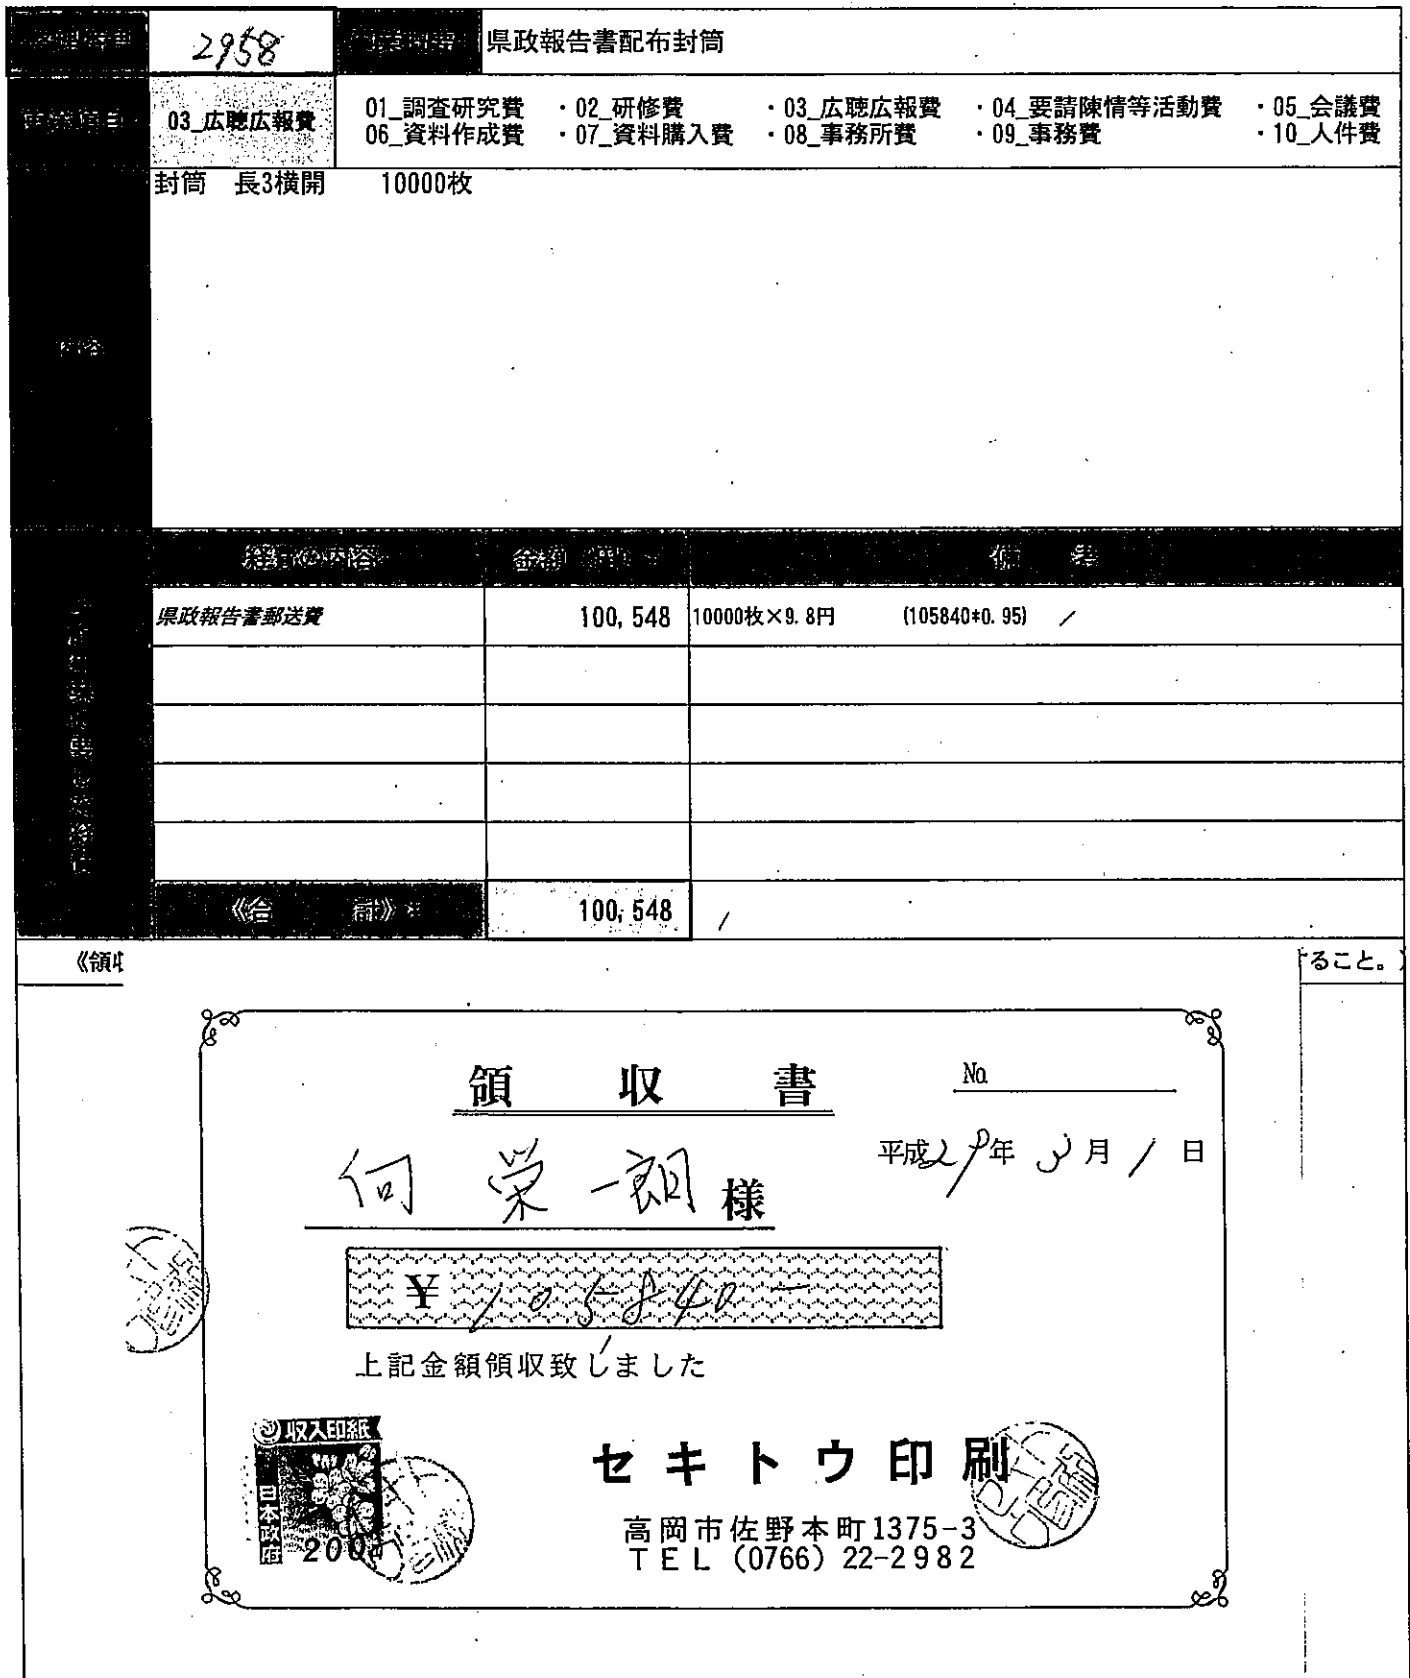 2958 県政報告書配布封筒
03_広聴広報費 01_調査研究費 ・02_研修費 ・03_広聴広報費 ・04_要請陳情等活動費 ・05_会議費
06_資料作成費 ・07_資料購入費 ・08_事務所費 ・09_事務費 ・10_人件費
封筒 長3横開 10000枚
内容
経費の内容 金額 備 考
県政報告書郵送費 100,548 10000枚×9.8円 (105840*0.95)
《合 計》 100,548
《領収
ること。）
領 収 書 No.
平成29年3月1日
向 栄一朗 様
¥105,840-
上記金額領収致しました
収入印紙
日本政府
200
セキトウ印刷
高岡市佐野本町1375-3
TEL (0766) 22-2982